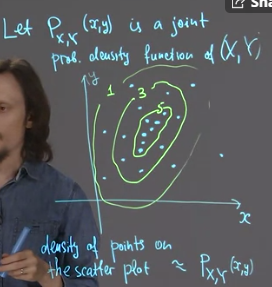 Sha
Let P_{X,Y}(x,y) is a joint
prob. density function of (X,Y)
y
1 3 5
x
density of points on
the scatter plot ≈ P_{X,Y}(x,y)